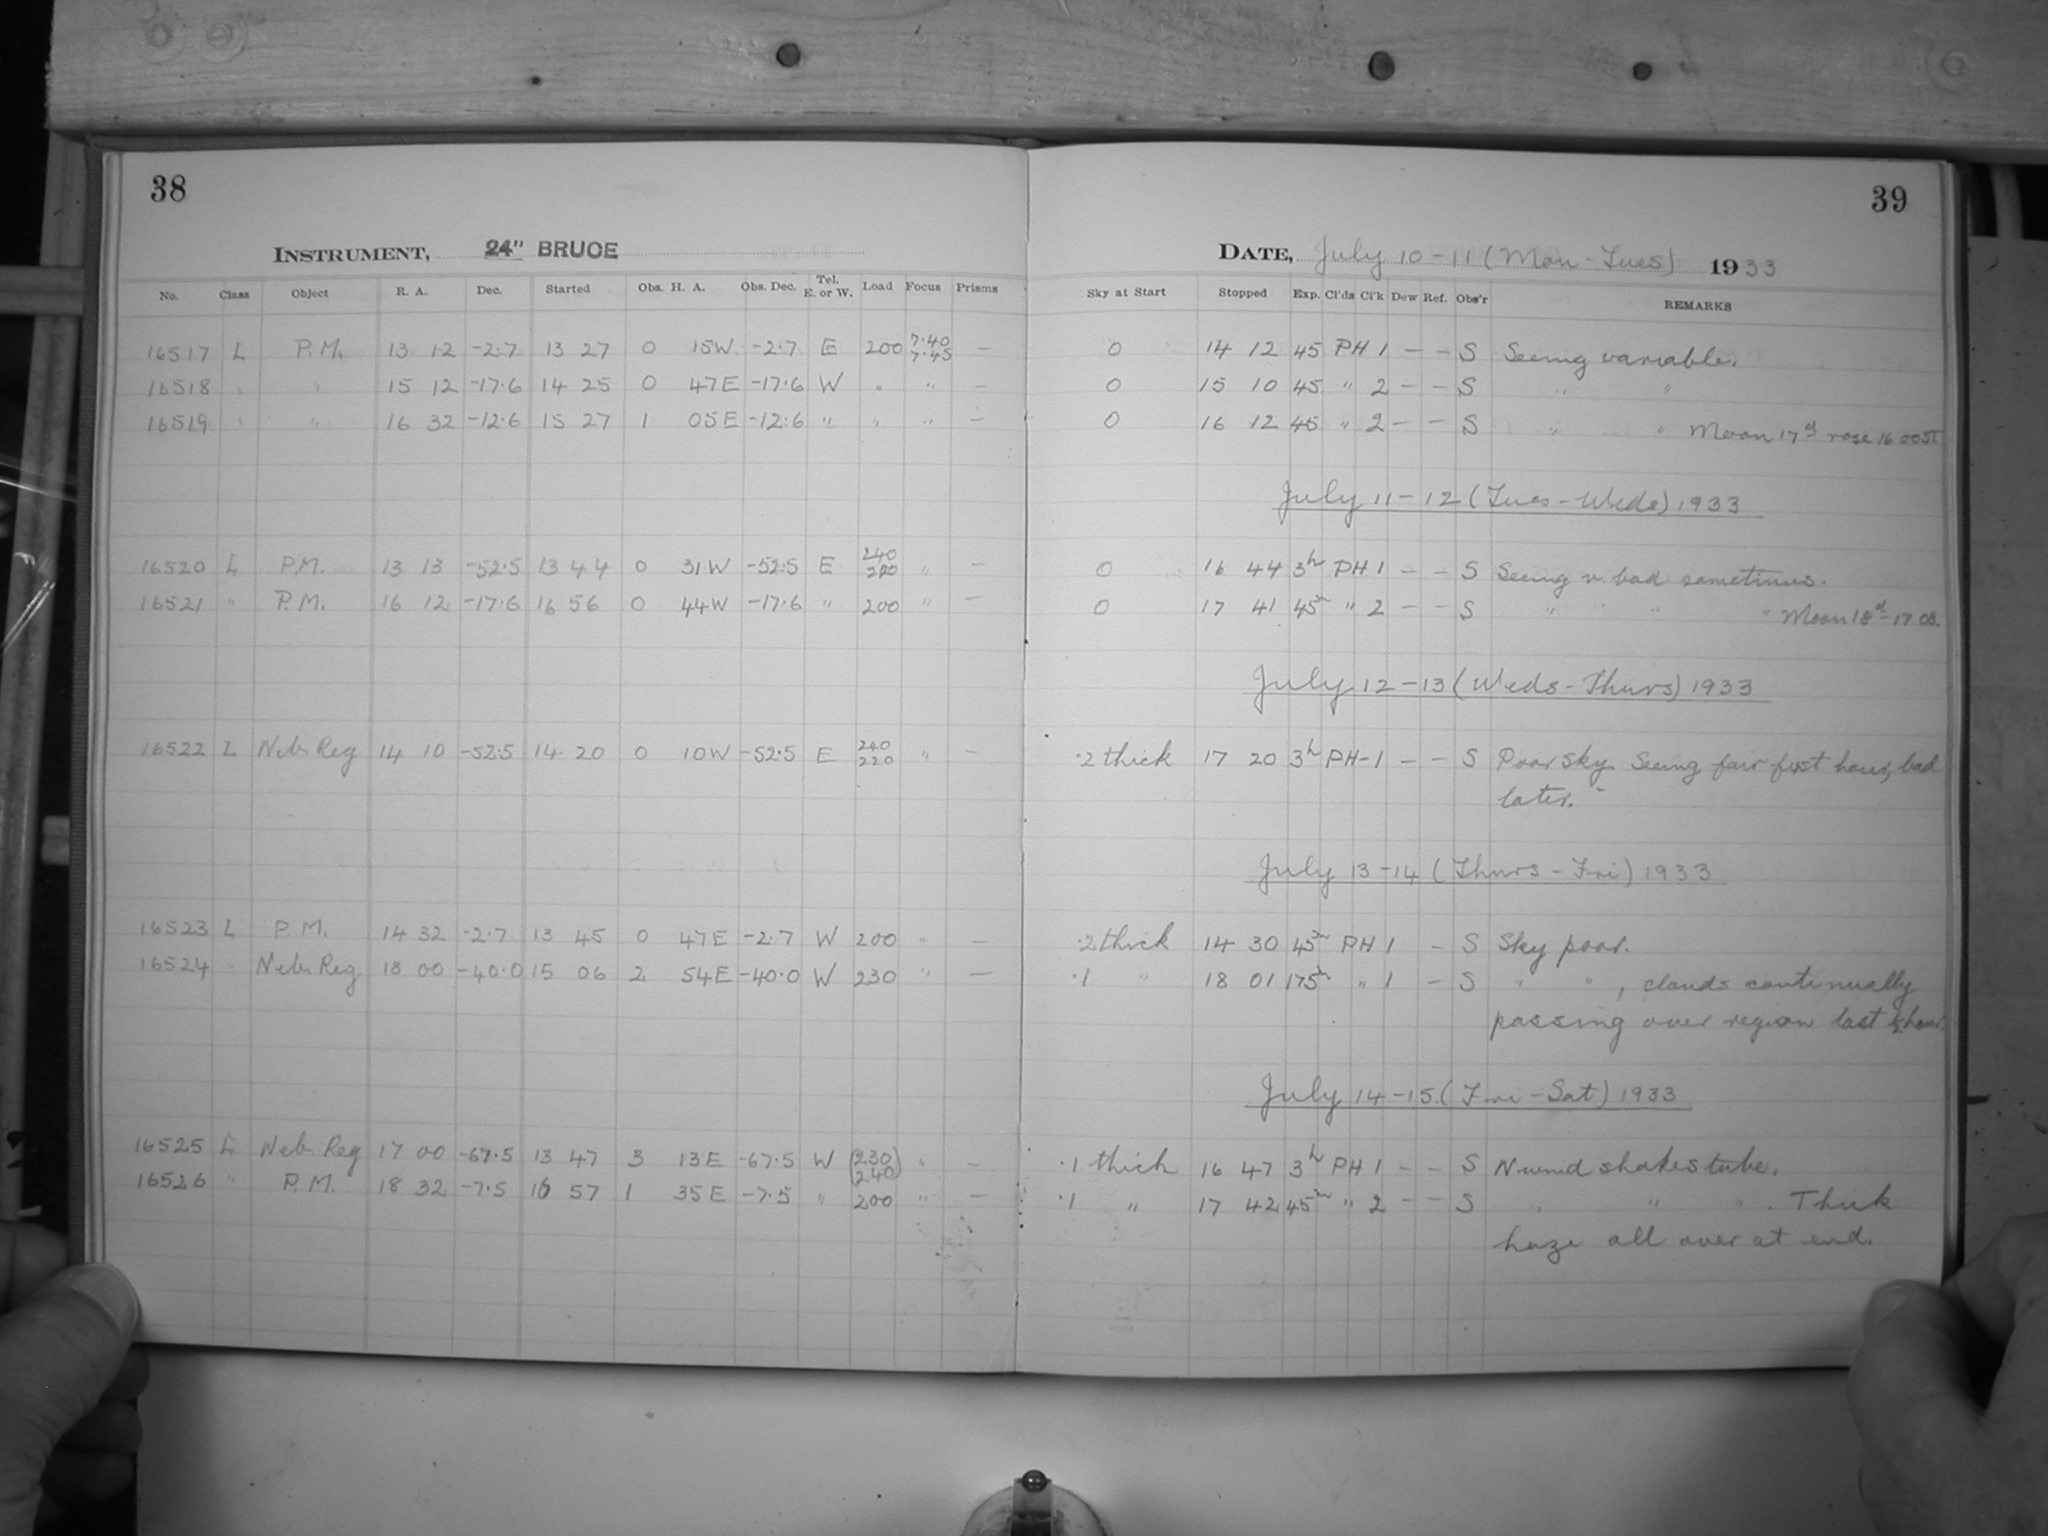 38
39
INSTRUMENT, 24" BRUCE
DATE, July 10-11 (Mon-Tues) 1933
No. Class Object R. A. Dec. Started Obs. H. A. Obs. Dec. Tel. E. or W. Load Focus Prisms Sky at Start Stopped Exp. Cl'ds Cl'k Dew Ref. Obs'r REMARKS
16517 L P.M. 13 12 -2.7 13 27 0 15W -2.7 E 200 7.40 7.45 — 0 14 12 45 PH 1 — — S Seeing variable.
16518 " " 15 12 -17.6 14 25 0 47E -17.6 W " " — 0 15 10 45 " 2 — — S " "
16519 " " 16 32 -12.6 15 27 1 05E -12.6 " " " — 0 16 12 45 " 2 — — S " " Moon 17d rose 16 00 ST
July 11-12 (Tues-Weds) 1933
16520 L P.M. 13 13 -52.5 13 44 0 31W -52.5 E 240 220 " — 0 16 44 3h PH 1 — — S Seeing v. bad sometimes.
16521 " P.M. 16 12 -17.6 16 56 0 44W -17.6 " 200 " — 0 17 41 45m " 2 — — S " " " " Moon 18d - 17 08.
July 12-13 (Weds-Thurs) 1933
16522 L Neb. Reg 14 10 -52.5 14 20 0 10W -52.5 E 240 220 " — .2 thick 17 20 3h PH-1 — — S Poor sky. Seeing fair first hour, bad
later.
July 13-14 (Thurs-Fri) 1933
16523 L P.M. 14 32 -2.7 13 45 0 47E -2.7 W 200 " — .2 thick 14 30 45m PH 1 — S Sky poor.
16524 " Neb. Reg 18 00 -40.0 15 06 2 54E -40.0 W 230 " — .1 " 18 01 175m " 1 — S " " , clouds continually
passing over region last ½ hour.
July 14-15 (Fri-Sat) 1933
16525 L Neb. Reg 17 00 -67.5 13 47 3 13E -67.5 W (230) 240) " — .1 thick 16 47 3h PH 1 — — S N wind shakes tube.
16526 " P.M. 18 32 -7.5 16 57 1 35E -7.5 " 200 " — .1 " 17 42 45m " 2 — — S " " " . Thick
haze all over at end.